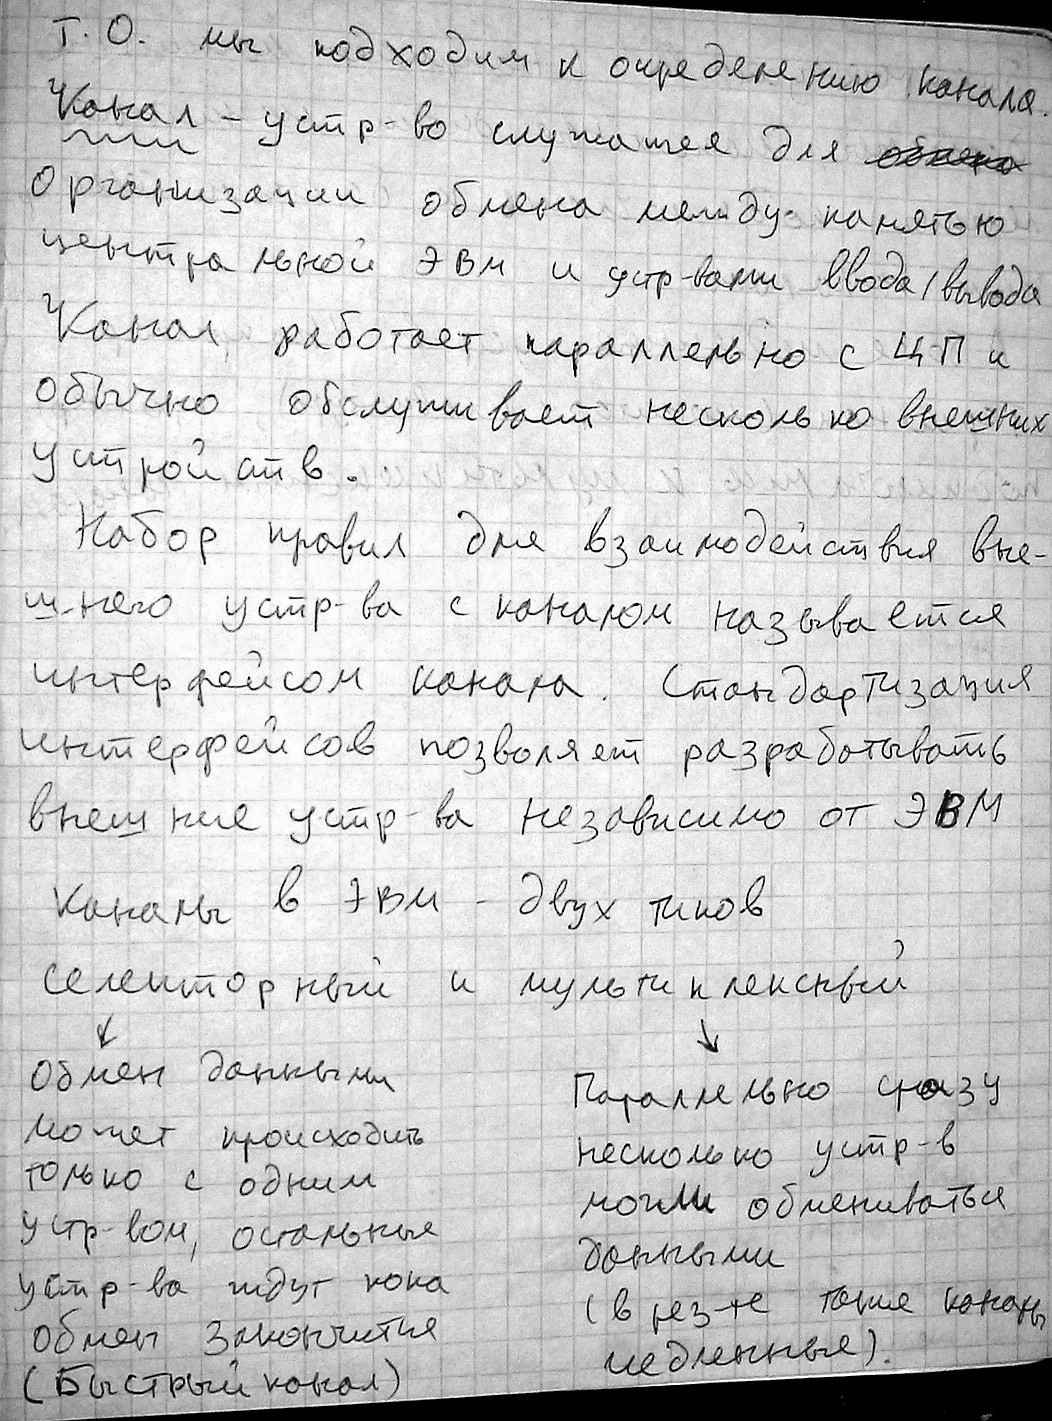 Т.О. мы подходим к определению канала.
Канал - устр-во служащее для обмена
организации обмена между памятью
центральной ЭВМ и устр-вами ввода/вывода
Канал работает параллельно с ЦП и
обычно обслуживает несколько внешних
устройств.
Набор правил для взаимодействия вне-
шнего устр-ва с каналом называется
интерфейсом канала. Стандартизация
интерфейсов позволяет разрабатывать
внешние устр-ва независимо от ЭВМ
Каналы в ЭВМ - двух типов
селекторный и мультиплексный
Обмен данными
может происходить
только с одним
устр-вом, остальные
устр-ва ждут пока
обмен закончится
(Быстрый канал)
Параллельно сразу
несколько устр-в
могли обмениваться
данными
(в рез-те такие каналы
медленные).